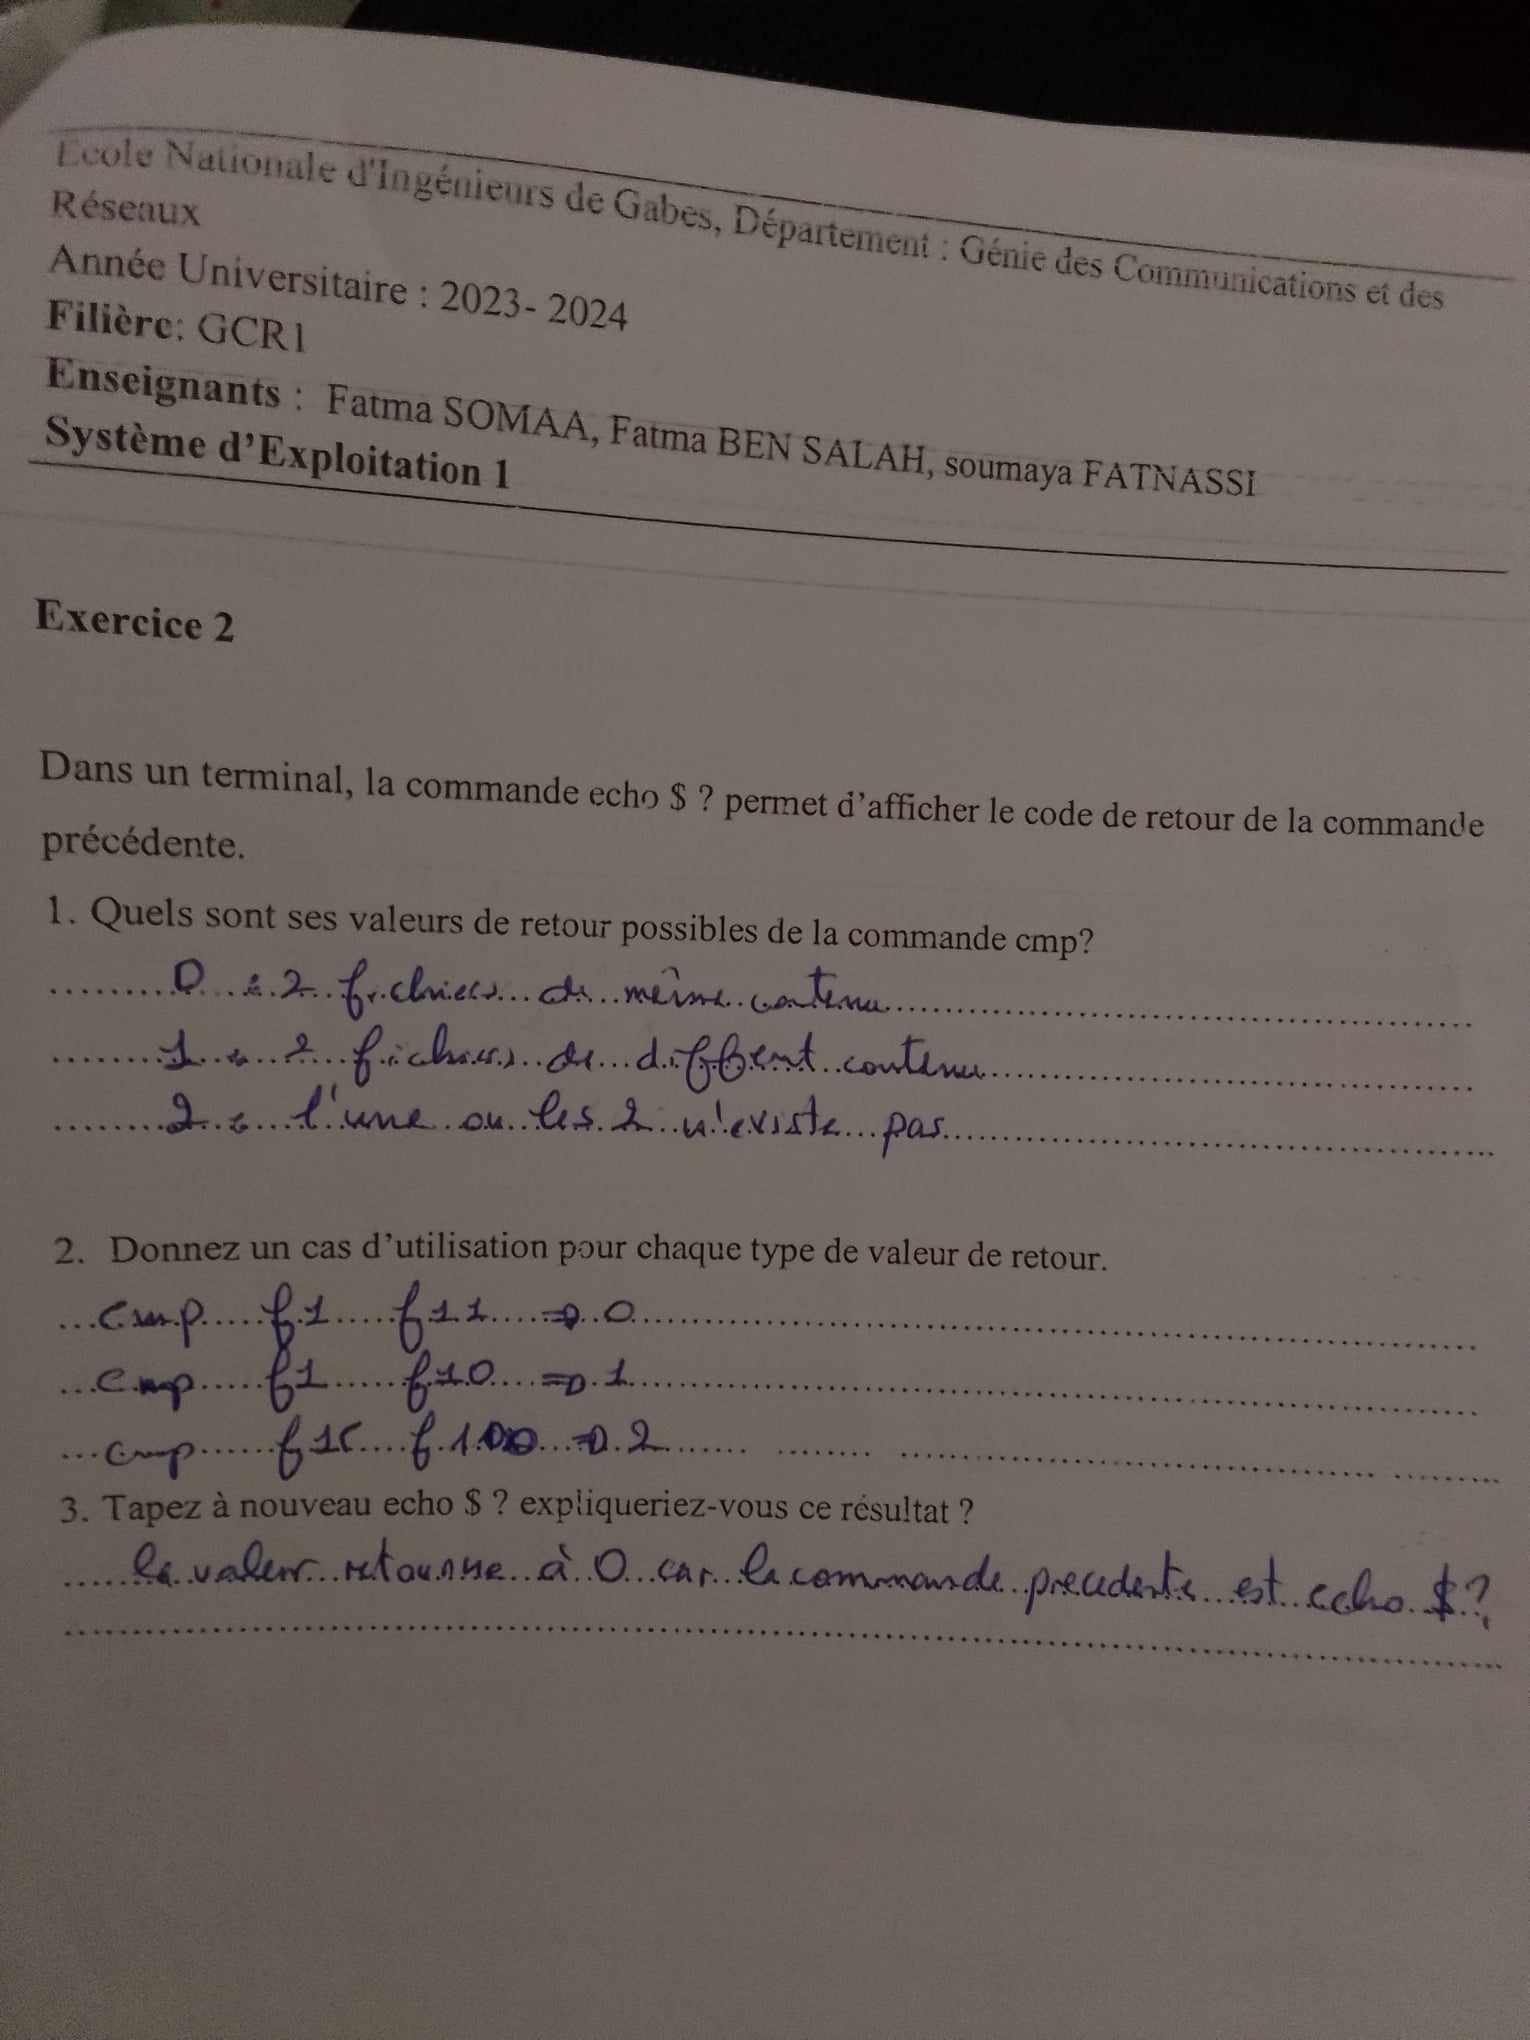 Ecole Nationale d'Ingénieurs de Gabes, Département : Génie des Communications et des
Réseaux
Année Universitaire : 2023- 2024
Filière: GCR1
Enseignants : Fatma SOMAA, Fatma BEN SALAH, soumaya FATNASSI
Système d'Exploitation 1
Exercice 2
Dans un terminal, la commande echo $ ? permet d'afficher le code de retour de la commande
précédente.
1. Quels sont ses valeurs de retour possibles de la commande cmp?
0 : 2 fichiers de même contenu
1 : 2 fichiers de différent contenu
2 : l'une ou les 2 n'existe pas
2. Donnez un cas d'utilisation pour chaque type de valeur de retour.
cmp f1 f11 => 0
cmp f1 f10 => 1
cmp f15 f100 => 2
3. Tapez à nouveau echo $ ? expliqueriez-vous ce résultat ?
la valeur retourne à 0 car la commande precedente est echo $?